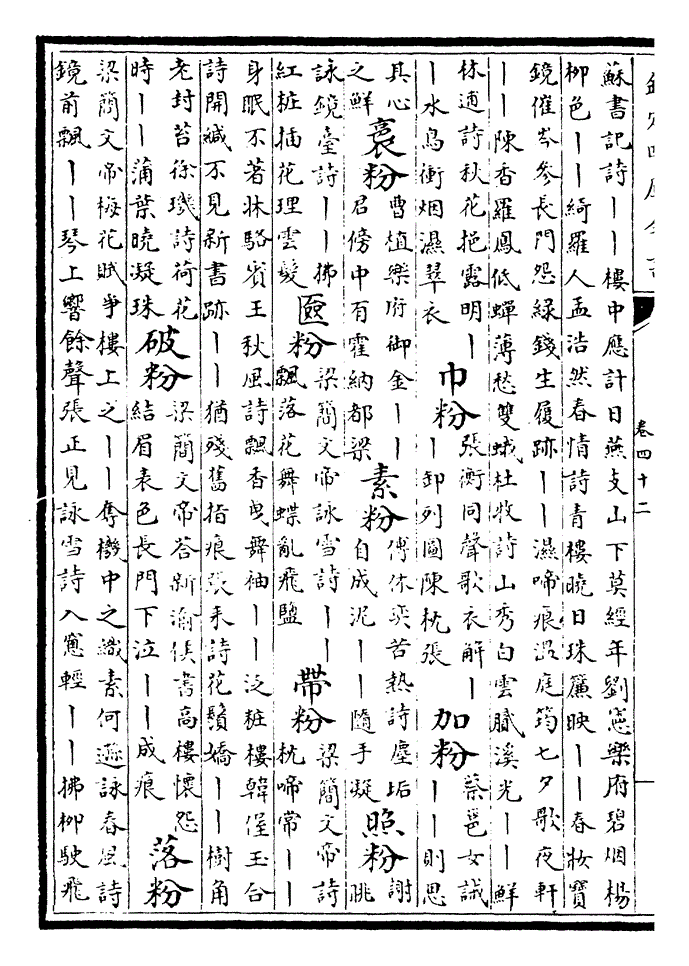 欽定四庫全書
卷四十二
蘇書記詩丨丨樓中應計日燕支山下莫經年劉憲樂府碧烟楊
柳色丨丨綺羅人孟浩然春情詩青樓曉日珠簾映丨丨春妝寶
鏡催岑參長門怨綠錢生履跡丨丨濕啼痕溫庭筠七夕歌夜軒
丨丨陳香羅鳳低蟬薄愁雙蛾杜牧詩山秀白雲膩溪光丨丨鮮
林逋詩秋花挹露明丨
丨水鳥衝烟濕翠衣
巾粉
張衡同聲歌衣解丨
丨卸列圖陳枕張
加粉
蔡邕女誡
丨丨則思
其心
之鮮
裛粉
曹植樂府御金丨丨
君傍中有霍納都梁
素粉
傅休奕苦熱詩塵垢
自成泥丨丨隨手凝
照粉
謝
眺
詠鏡臺詩丨丨拂
紅桩插花理雲髮
匳粉
梁簡文帝詠雪詩丨丨
飄落花舞蝶亂飛鹽
帶粉
梁簡文帝詩
枕啼常丨丨
身眠不著牀駱賓王秋風詩飄香曳舞袖丨丨泛粧樓韓偓玉合
詩開緘不見新書跡丨丨猶殘舊指痕張耒詩花鬚嬌丨丨樹角
老封苔徐璣詩荷花
時丨丨蒲葉曉凝珠
破粉
梁簡文帝荅新渝侯書高樓懷怨
結眉表色長門下泣丨丨成痕
落粉
梁簡文帝梅花賦爭樓上之丨丨奪機中之織素何遜詠春風詩
鏡前飄丨丨琴上響餘聲張正見詠雪詩入窻輕丨丨拂柳駛飛